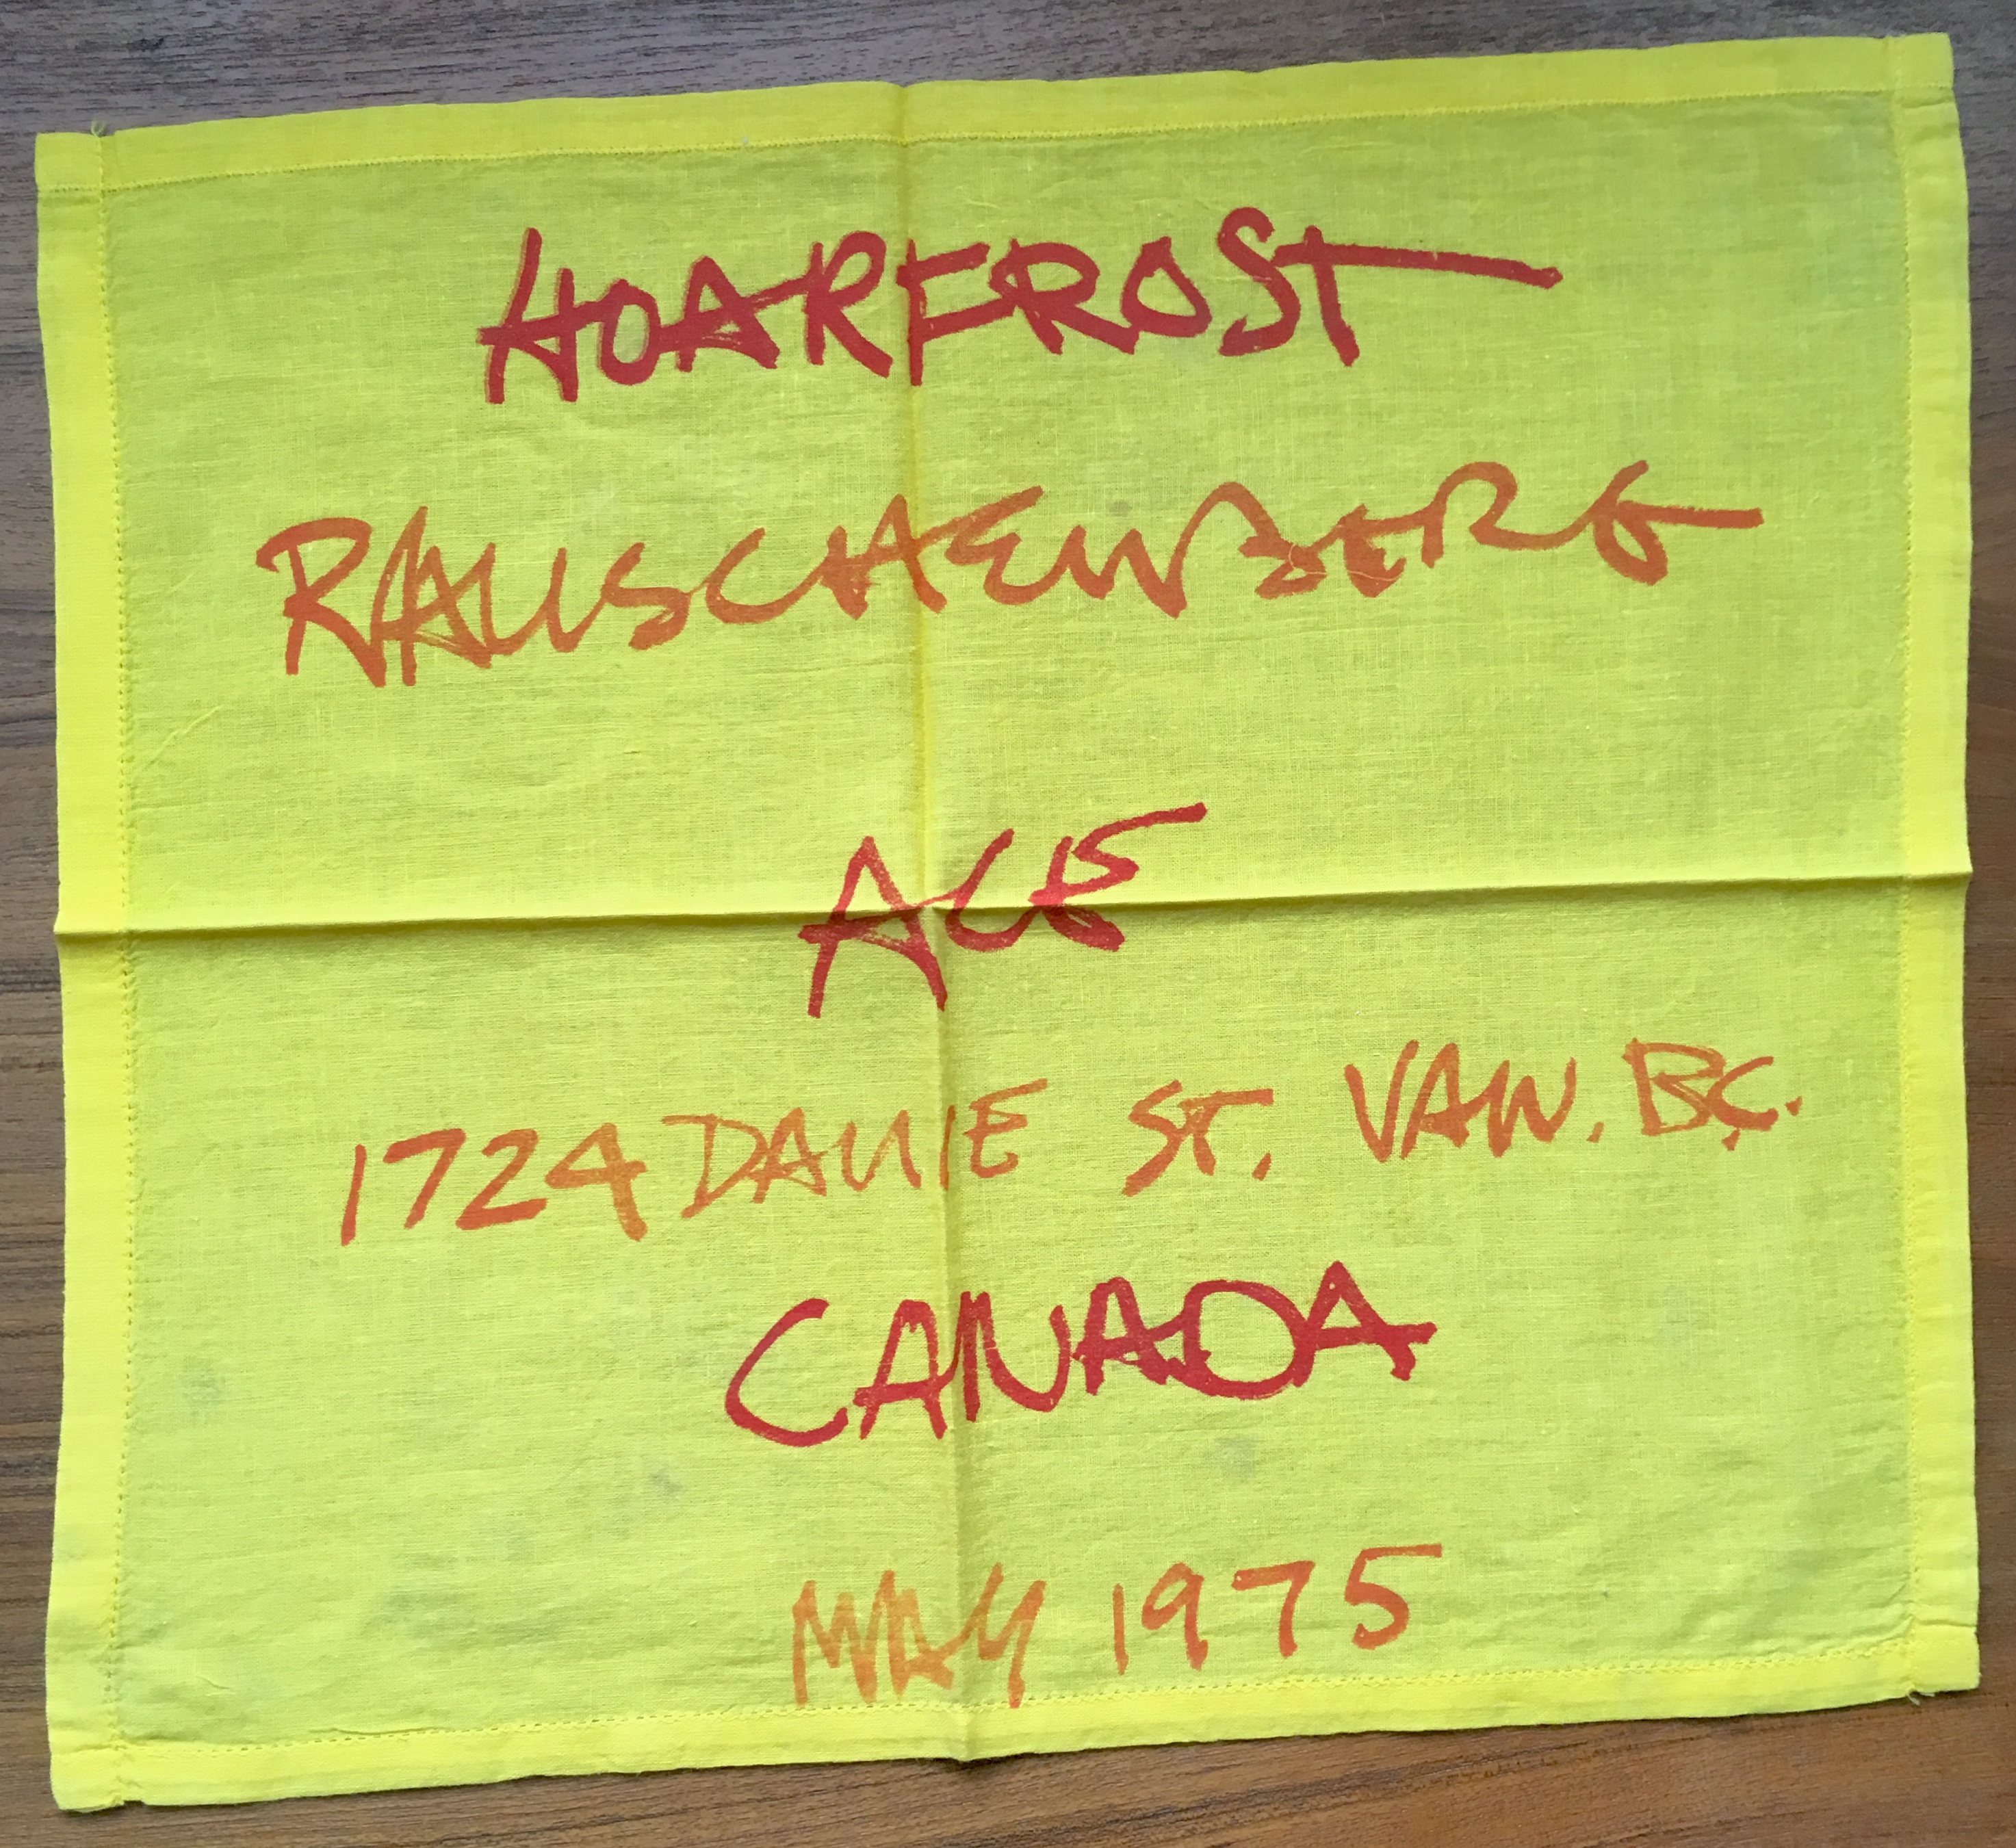 HOARFROST
RAUSCHENBERG
ACE
1724 DAVIE ST. VAN. B.C.
CANADA
MAY 1975